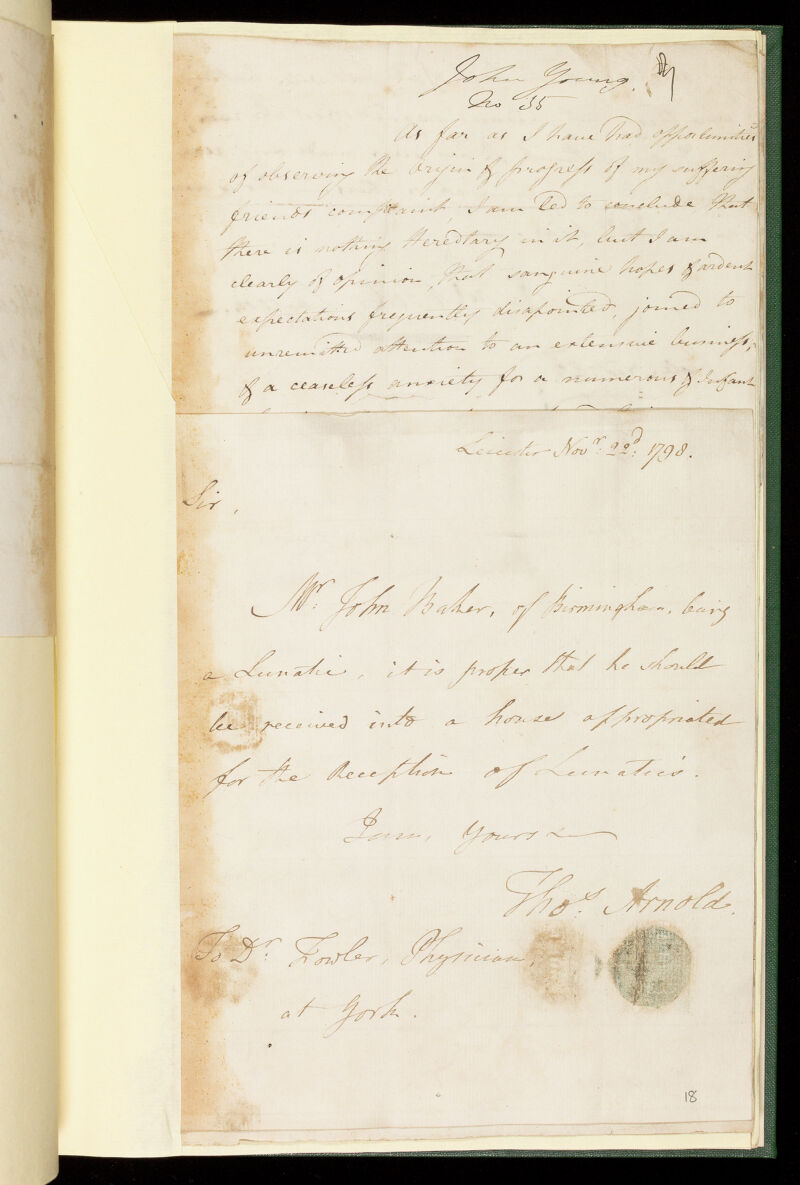 John Young.
No 35
As far as I have had opportunities
of observing the origin & progress of my suffering
friends complaint, I am led to conclude that
there is nothing Heredtary in it, but I am
clearly of opinion, that sanguine hopes & ardent
expectations frequently disapointed, joined to
unremitted attention to an extensive business,
& a ceaseless anxiety for a numerous & Infant
Leicester Novr. 22d: 1798.
Sir,
Mr. John Baker, of Birmingham, being
a Lunatic, it is proper that he should
be received into a house appropriated
for the Reception of Lunatics.
I am, Yours
Thos. Arnold.
To Dr. Fowler, Physician,
at York.
18